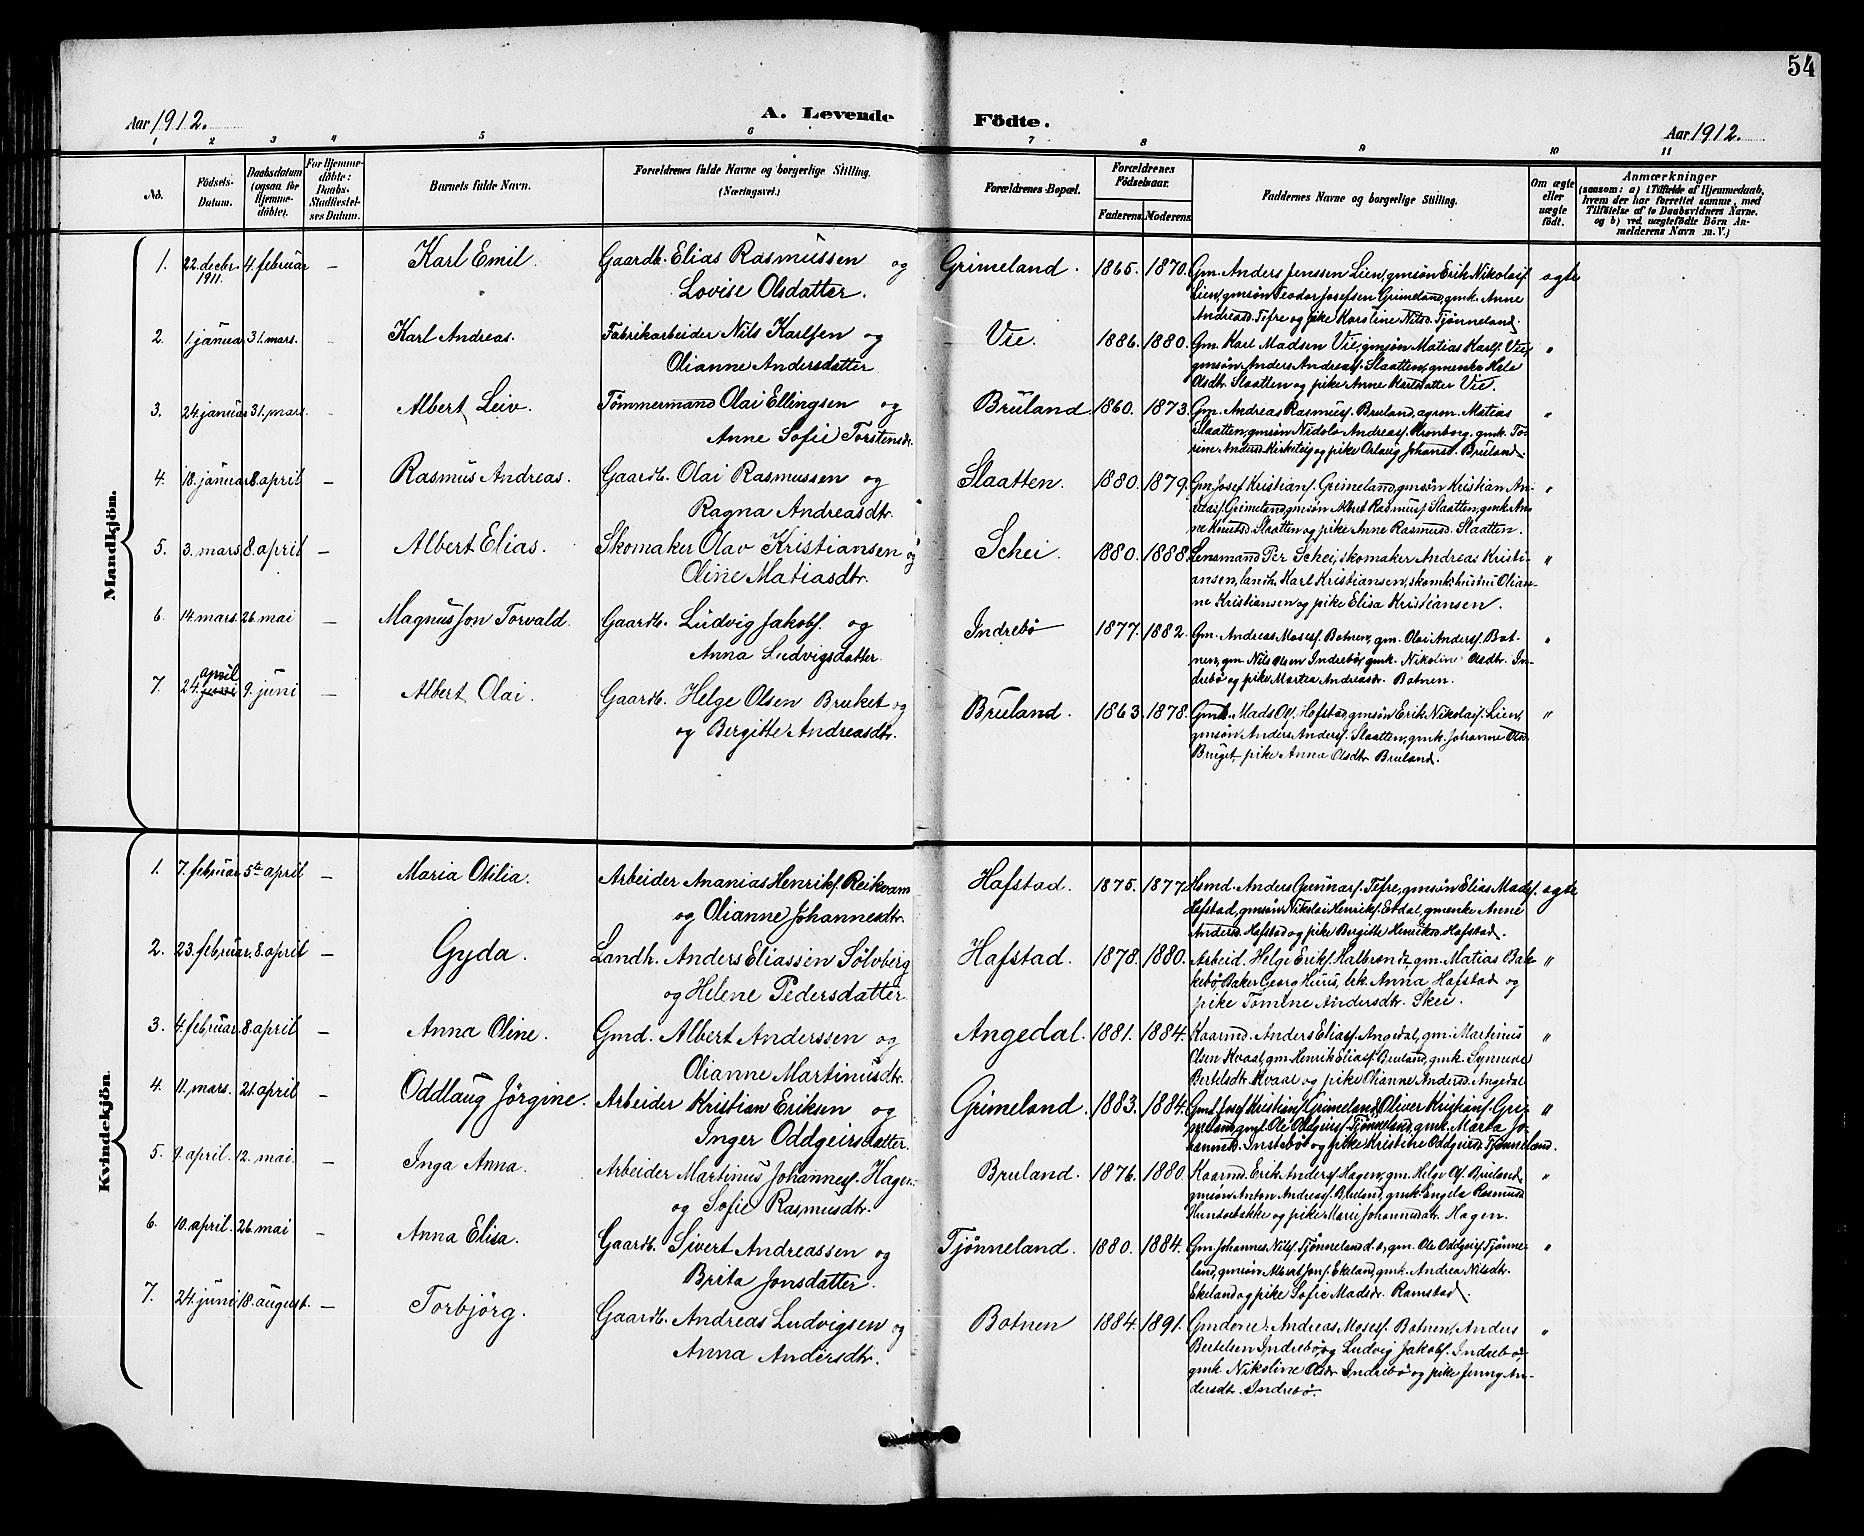 54
Aar 1912.
A. Levende
Födte.
Aar 1912.
1 2 3 4 5 6 7 8 9 10 11
No.
Födsels-Datum.
Daabsdatum (ogsaa for Hjemme-döbte).
For Hjemme-döbte: Daabs-Stadfæstel-ses Datum.
Barnets fulde Navn.
Forældrenes fulde Navne og borgerlige Stilling. (Næringsvei.)
Forældrenes Bopæl.
Forældrenes Födselsaar.
Faderens. Moderens.
Faddernes Navne og borgerlige Stilling.
Om ægte eller uægte födt.
Anmærkninger
(saasom: a) i Tilfælde af Hjemmedaab, hvem der har forrettet samme, med Tilföielse af to Daabsvidners Navne. og b) ved uægtefödte Börn An-melderens Navn m. V.)
Mandkjön.
1. 22. decbr. 1911. 4. februar – Karl Emil. Gaardb. Elias Rasmussen og Lovise Olsdatter. Grimeland. 1865. 1870. Gm. Anders Jenssen Lien, gmsøn Erik Nikolaisf. ægte
Lien, gmsøn Teodor Josefsen Grimeland, gmk. Anne
Andreasd. Tefre og pike Karoline Nilsd. Tjønneland.
2. 1. januar 31. mars. – Karl Andreas. Fabrikarbeider Nils Karlsen og Olianne Andersdatter Vie. 1886. 1880. Gm. Karl Madsen Vie, gmsøn Matias Karlsf. Vie, "
gmsøn Anders Andreasf. Slaatten, gmenke Hele
Olsdtr. Slaatten og pike Anne Karlsdatter Vie.
3. 24. januar 31. mars. – Albert Leiv. Tömmermand Olai Ellingsen og Anne Sofie Torstensdtr. Bruland. 1860. 1873. Gm. Andreas Rasmusf. Bruland, agron. Matias "
Slaatten, gmsøn Nidolo Andreasf. Kronborg, gmk. To-
rine Andersd. Kirketeig og pike Oslaug Johansd. Bruland.
4. 18. januar 8. april – Rasmus Andreas. Gaardb. Olai Rasmussen og Ragna Andreasdtr. Slaatten. 1880. 1879. Gm. Josef Kristiansf. Grimeland, gmsøn Kristian An- "
dreasf. Grimeland, gmsøn Albert Rasmusf. Slaatten, gmk. An-
ne Knutsd. Slaatten og pike Anne Rasmusd. Slaatten.
5. 3. mars 8. april – Albert Elias. Skomaker Olav Kristiansen og Oline Matiasdtr. Schei. 1880. 1888. Lensmand Per Schei, skomaker Andreas Kristi- "
ansen, landh. Karl Kristiansen, skomk. hustru Olian-
ne Kristiansen og pike Elisa Kristiansen.
6. 14. mars. 26. mai – Magnus Jon Torvald. Gaardb. Ludvig Jakobf. og Anna Ludvigsdatter. Indrebö 1877. 1882. Gm. Andreas Mosesf. Botnen, gm. Olai Andersf. Bot- "
nen, gm. Nils Olsen Indrebö, gmk. Nikoline Olsdtr. In-
drebö og pike Martea Andreasdr. Botnen.
7. 24. april juni 9. juni – Albert Olai. Gaardb. Helge Olsen Bruket og og Bergitte Andreasdtr. Bruland. 1863. 1878. Gmd. Mads Olf. Hofstad, gmsøn Erik Nikolaif. Lien, "
gmsøn Anders Andersf. Slaatten, gmk. Johanne Ols.
Bruget, pike Anna Olsdtr. Bruland.
Kvindekjön.
1. 7. februar 5te april – Maria Otilia. Arbeider Ananias Henriksf. Reikvam og Olianne Johannesdtr. Hafstad. 1875. 1877. Hsmd. Anders Gunnarf. Tefre, gmsøn Elias Madsf. ægte
Hofstad, gmsøn Nikolai Henriksf. Erdal, gmenke Anne
Andersd. Hofstad og pike Bergitte Henriksd. Hofstad.
2. 23. februar. 8. april – Gyda. Landh. Anders Eliassen Sölvberg og Helene Pedersdatter. Hafstad. 1878. 1880. Arbeid. Helge Eriksf. Halbrend, gm. Matias Bak- "
kebö, Baker Georg Huus, lrk. Anna Hofstad og
pike Tomine Andersdtr. Skei.
3. 4. februar. 8. april – Anna Oline. Gmd. Albert Anderssen og Olianne Martinusdtr. Angedal. 1881. 1884. Kaarmd. Anders Eliasf. Angedal, gm. Martinus "
Olsen Kvaal, gm. Henrik Eliasf. Bruland, gmk. Synneve
Bertelsdtr. Kvaal og pike Olianne Andersd. Angedal
4. 11. mars. 21. april – Oddlaug Jörgine. Arbeider Kristian Eriksen og Inger Oddgeirsdatter. Grimeland. 1883. 1884. Gmd. Josef Kristiansf. Grimeland, Oliver Kristiansf. Gri- "
meland, gmsf. Ole Oddgeirsf. Tjønneland, gmk. Marta Jo-
hannesd. Instebö og pike Kristine Oddgeirsd. Tjønneland.
5. 9. april. 12. mai. – Inga Anna. Arbeider Martinus Johannesf. Hagen og Sofie Rasmusdtr. Bruland. 1876. 1880. Kaarmd. Erik Andersf. Hagen, gm. Helge Olf. Bruland, "
gmsøn Anton Andreasf. Bruland, gmk. Engela Rasmusd.
Hundsebakke og pike Marie Johannesdtr. Hagen.
6. 10. april. 26. mai – Anna Elisa. Gaardb. Sjvert Andreassen og Brita Jonsdatter. Tjønneland. 1880. 1884. Gm. Johannes Nilsf. Tjønneland d. e., gm. Ole Oddgeirsf. Tjønne- "
land, gmsøn Albert Jonsf. Ekeland, gmk. Andrea Nilsdtr.
Ekeland og pike Sofie Madsdr. Ramstad.
7. 24. juni 18. august. – Torbjörg. Gaardb. Andreas Ludvigsen og Anna Andersdtr. Botnen 1884. 1891. Gmdene: Andreas Mosesf. Botnen, Anders "
Bertelsen Indrebö, og Ludvig Jakobf. Indrebö,
gmk. Nikoline Olsdr Indrebö og pike Jenny An-
dersdtr. Indrebö.